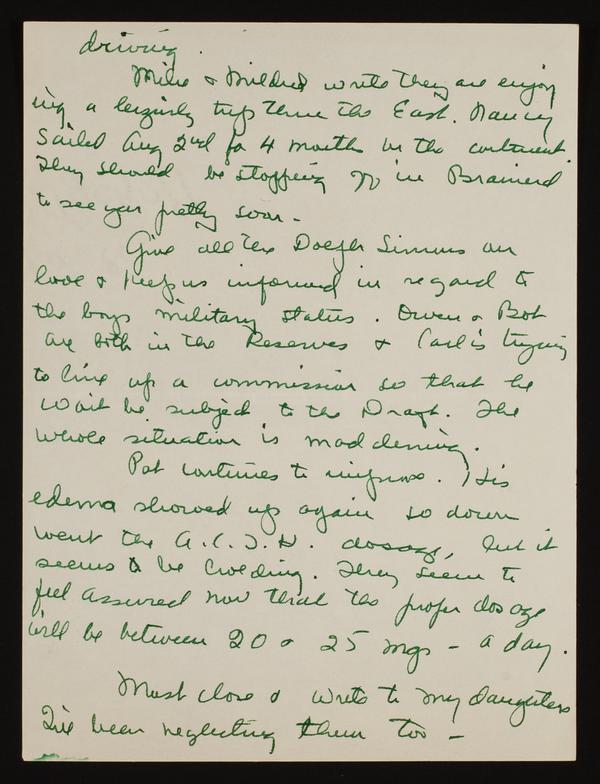 driving.
Mike & Mildred write they are enjoy
ing a leizurly trip thru the East. Nancy
Sailed Aug 2nd for 4 month in the continent.
They should be stopping off in Brainerd
to see you pretty soon -
Give all the Simms our
love & keep us informed in regard to
the boys military status. Owen & Bob
are both in the Reserves & Carl is trying
to line up a commission so that he
wont be subject to the Draft. The
whole situation is maddening.
Pat continues to improve. His
edema showed up again so down
went the A.C.T.H. dosage, but it
seems to be holding. They seem to
feel assured now that the proper dosage
will be between 20 & 25 mgs - a day.
Must close & write to my daughters
I've been neglecting them too -